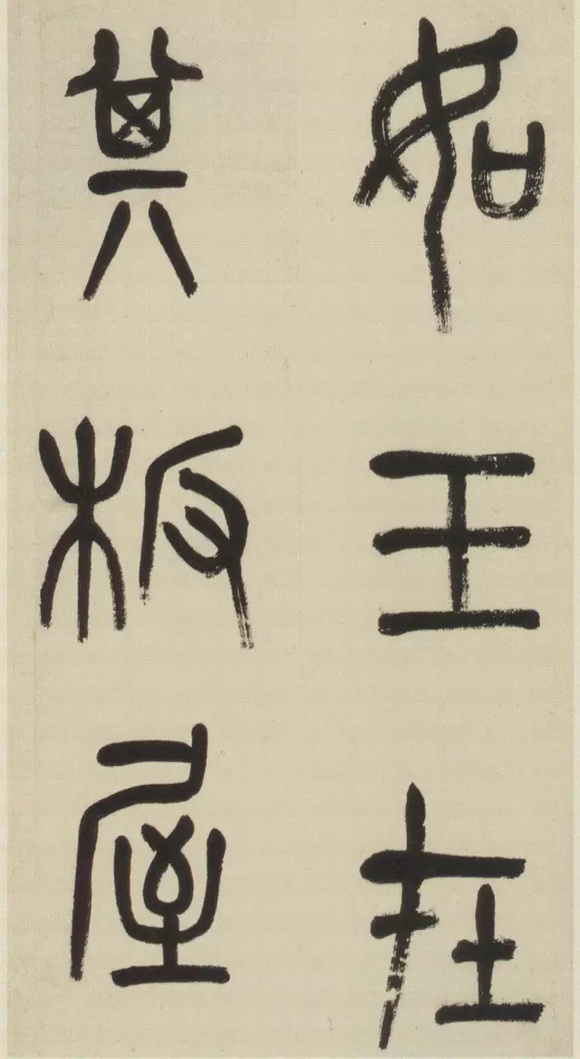 如玉在
其板屋